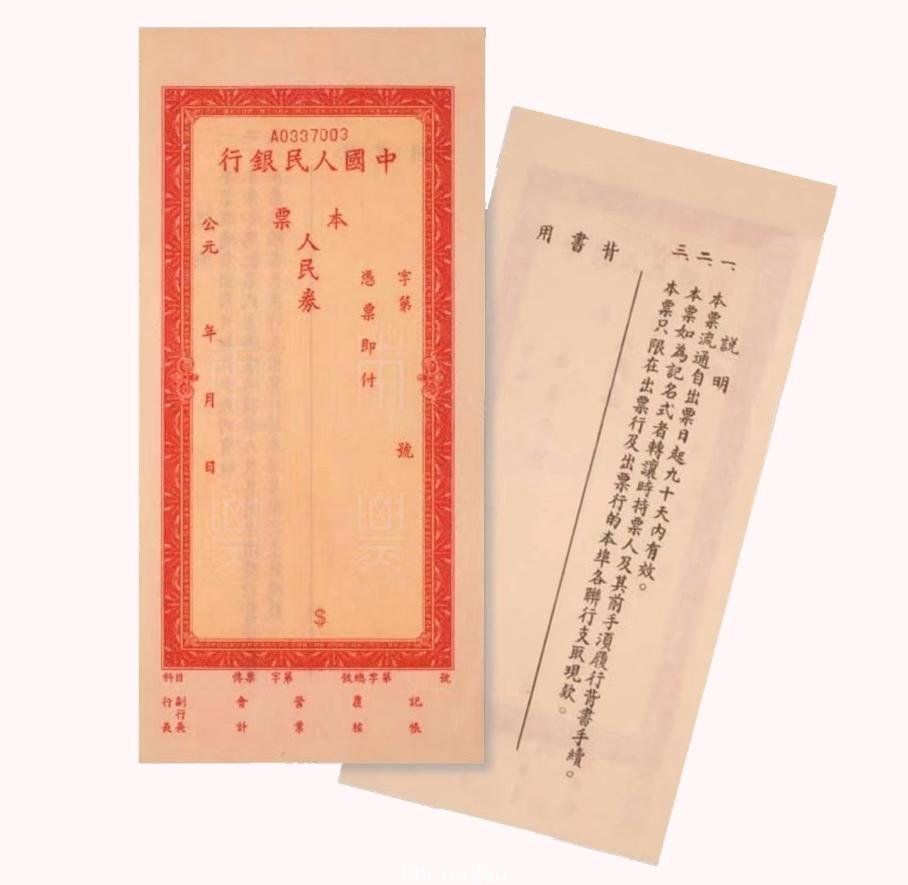 A0337003
中國人民銀行
本票
字第　號
憑票即付
人民券
$
公元　年　月　日
科目　傳票　字第　號總字第　號
記帳
覆核
營業
會計
副行長
行長
說明
一、本票流通自出票日起九十天內有效。
二、本票如為記名式者轉讓時持票人及其前手須履行背書手續。
三、本票只限在出票行及出票行的本埠各聯行支取現款。
背書用